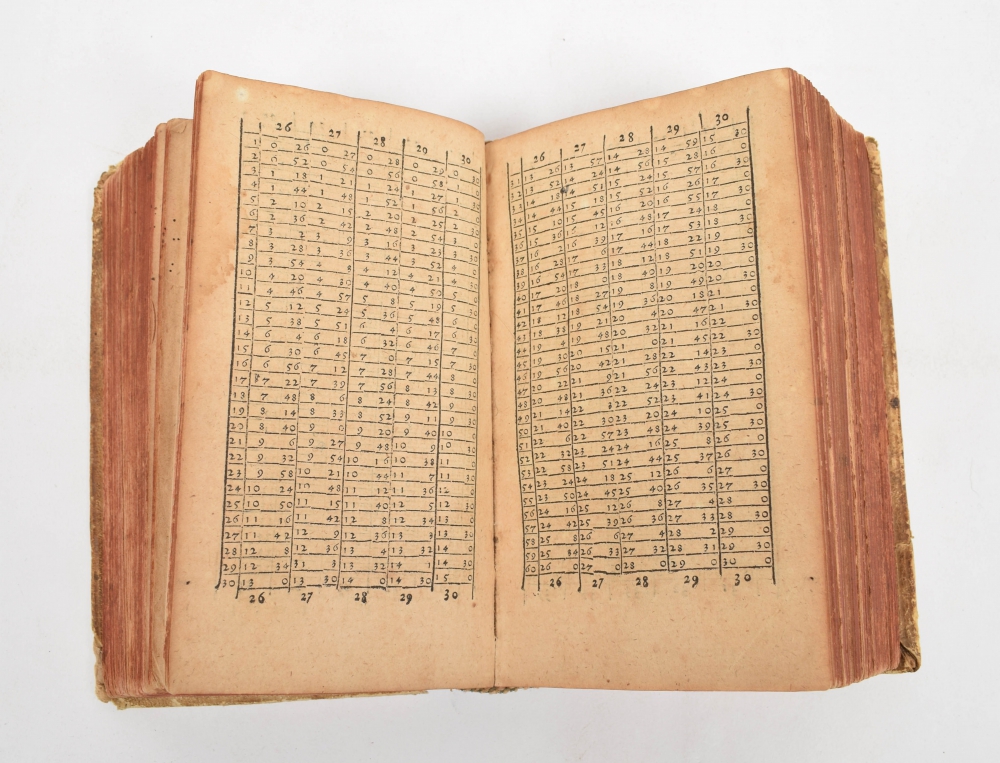 26 27 28 29 30
1 0 26 0 27 0 28 0 29 0 30
2 0 52 0 54 0 56 0 58 1 0
3 1 18 1 21 1 24 1 27 1 30
4 1 44 1 48 1 52 1 56 2 0
5 2 10 2 15 2 20 2 25 2 30
6 2 36 2 42 2 48 2 54 3 0
7 3 2 3 9 3 16 3 23 3 30
8 3 28 3 36 3 44 3 52 4 0
9 3 54 4 3 4 12 4 21 4 30
10 4 20 4 30 4 40 4 50 5 0
11 4 46 4 57 5 8 5 19 5 30
12 5 12 5 24 5 36 5 48 6 0
13 5 38 5 51 6 4 6 17 6 30
14 6 4 6 18 6 32 6 46 7 0
15 6 30 6 45 7 0 7 15 7 30
16 6 56 7 12 7 28 7 44 8 0
17 7 22 7 39 7 56 8 13 8 30
18 7 48 8 6 8 24 8 42 9 0
19 8 14 8 33 8 52 9 11 9 30
20 8 40 9 0 9 20 9 40 10 0
21 9 6 9 27 9 48 10 9 10 30
22 9 32 9 54 10 16 10 38 11 0
23 9 58 10 21 10 44 11 7 11 30
24 10 24 10 48 11 12 11 36 12 0
25 10 50 11 15 11 40 12 5 12 30
26 11 16 11 42 12 8 12 34 13 0
27 11 42 12 9 12 36 13 3 13 30
28 12 8 12 36 13 4 13 32 14 0
29 12 34 31 3 13 32 14 1 14 30
30 13 0 13 30 14 0 14 30 15 0
26 27 28 29 30
26 27 28 29 30
31 13 26 13 57 14 28 14 59 15 30
32 13 52 14 24 14 56 15 28 16 0
33 14 18 14 51 15 24 15 57 16 30
34 14 44 15 18 15 52 16 26 17 0
35 15 10 15 45 16 20 16 55 17 30
36 15 36 16 12 16 48 17 24 18 0
37 16 2 16 39 17 16 17 53 18 30
38 16 28 17 6 17 44 18 22 19 0
39 16 54 17 33 18 12 18 51 19 30
40 17 20 18 0 18 40 19 20 20 0
41 17 46 18 27 19 8 19 49 20 30
42 18 12 18 54 19 36 20 18 21 0
43 18 38 19 21 20 4 20 47 21 30
44 19 4 19 48 20 32 21 16 22 0
45 19 30 20 15 21 0 21 45 22 30
46 19 56 20 42 21 28 22 14 23 0
47 20 22 21 9 21 56 22 43 23 30
48 20 48 21 36 22 24 23 12 24 0
49 21 14 22 3 22 52 23 41 24 30
50 21 40 22 30 23 20 24 10 25 0
51 22 6 22 57 23 48 24 39 25 30
52 22 32 23 24 24 16 25 8 26 0
53 22 58 23 51 24 44 25 37 26 30
54 23 24 24 18 25 12 26 6 27 0
55 23 50 24 45 25 40 26 35 27 30
56 24 16 25 12 26 8 27 4 28 0
57 24 42 25 39 26 36 27 33 28 30
58 25 8 26 6 27 4 28 2 29 0
59 25 34 26 33 27 32 28 31 29 30
60 26 0 27 0 28 0 29 0 30 0
26 27 28 29 30